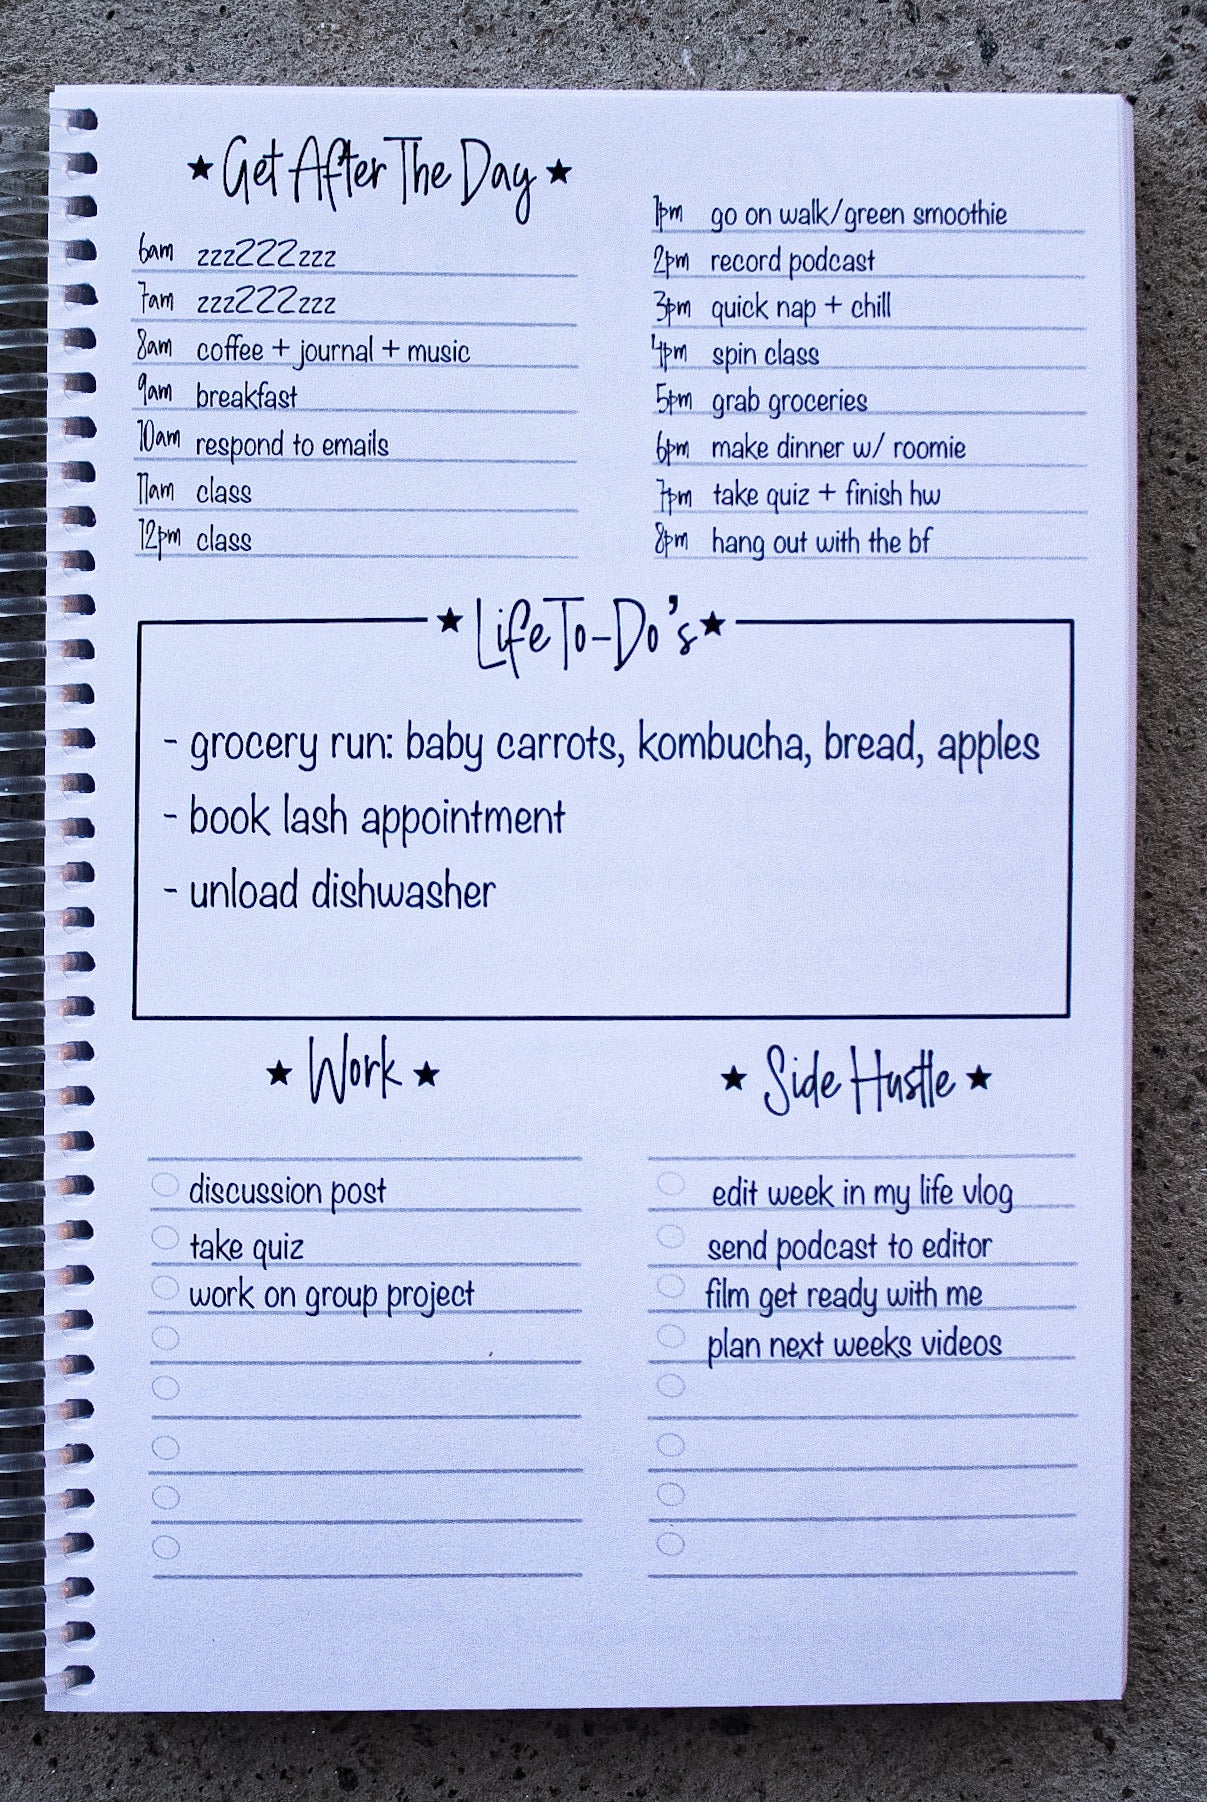 ★ Get After The Day ★
6am zzzZZZzzz
7am zzzZZZzzz
8am coffee + journal + music
9am breakfast
10am respond to emails
11am class
12pm class
1pm go on walk/green smoothie
2pm record podcast
3pm quick nap + chill
4pm spin class
5pm grab groceries
6pm make dinner w/ roomie
7pm take quiz + finish hw
8pm hang out with the bf
★ Life To-Do's ★
- grocery run: baby carrots, kombucha, bread, apples
- book lash appointment
- unload dishwasher
★ Work ★
discussion post
take quiz
work on group project
★ Side Hustle ★
edit week in my life vlog
send podcast to editor
film get ready with me
plan next weeks videos